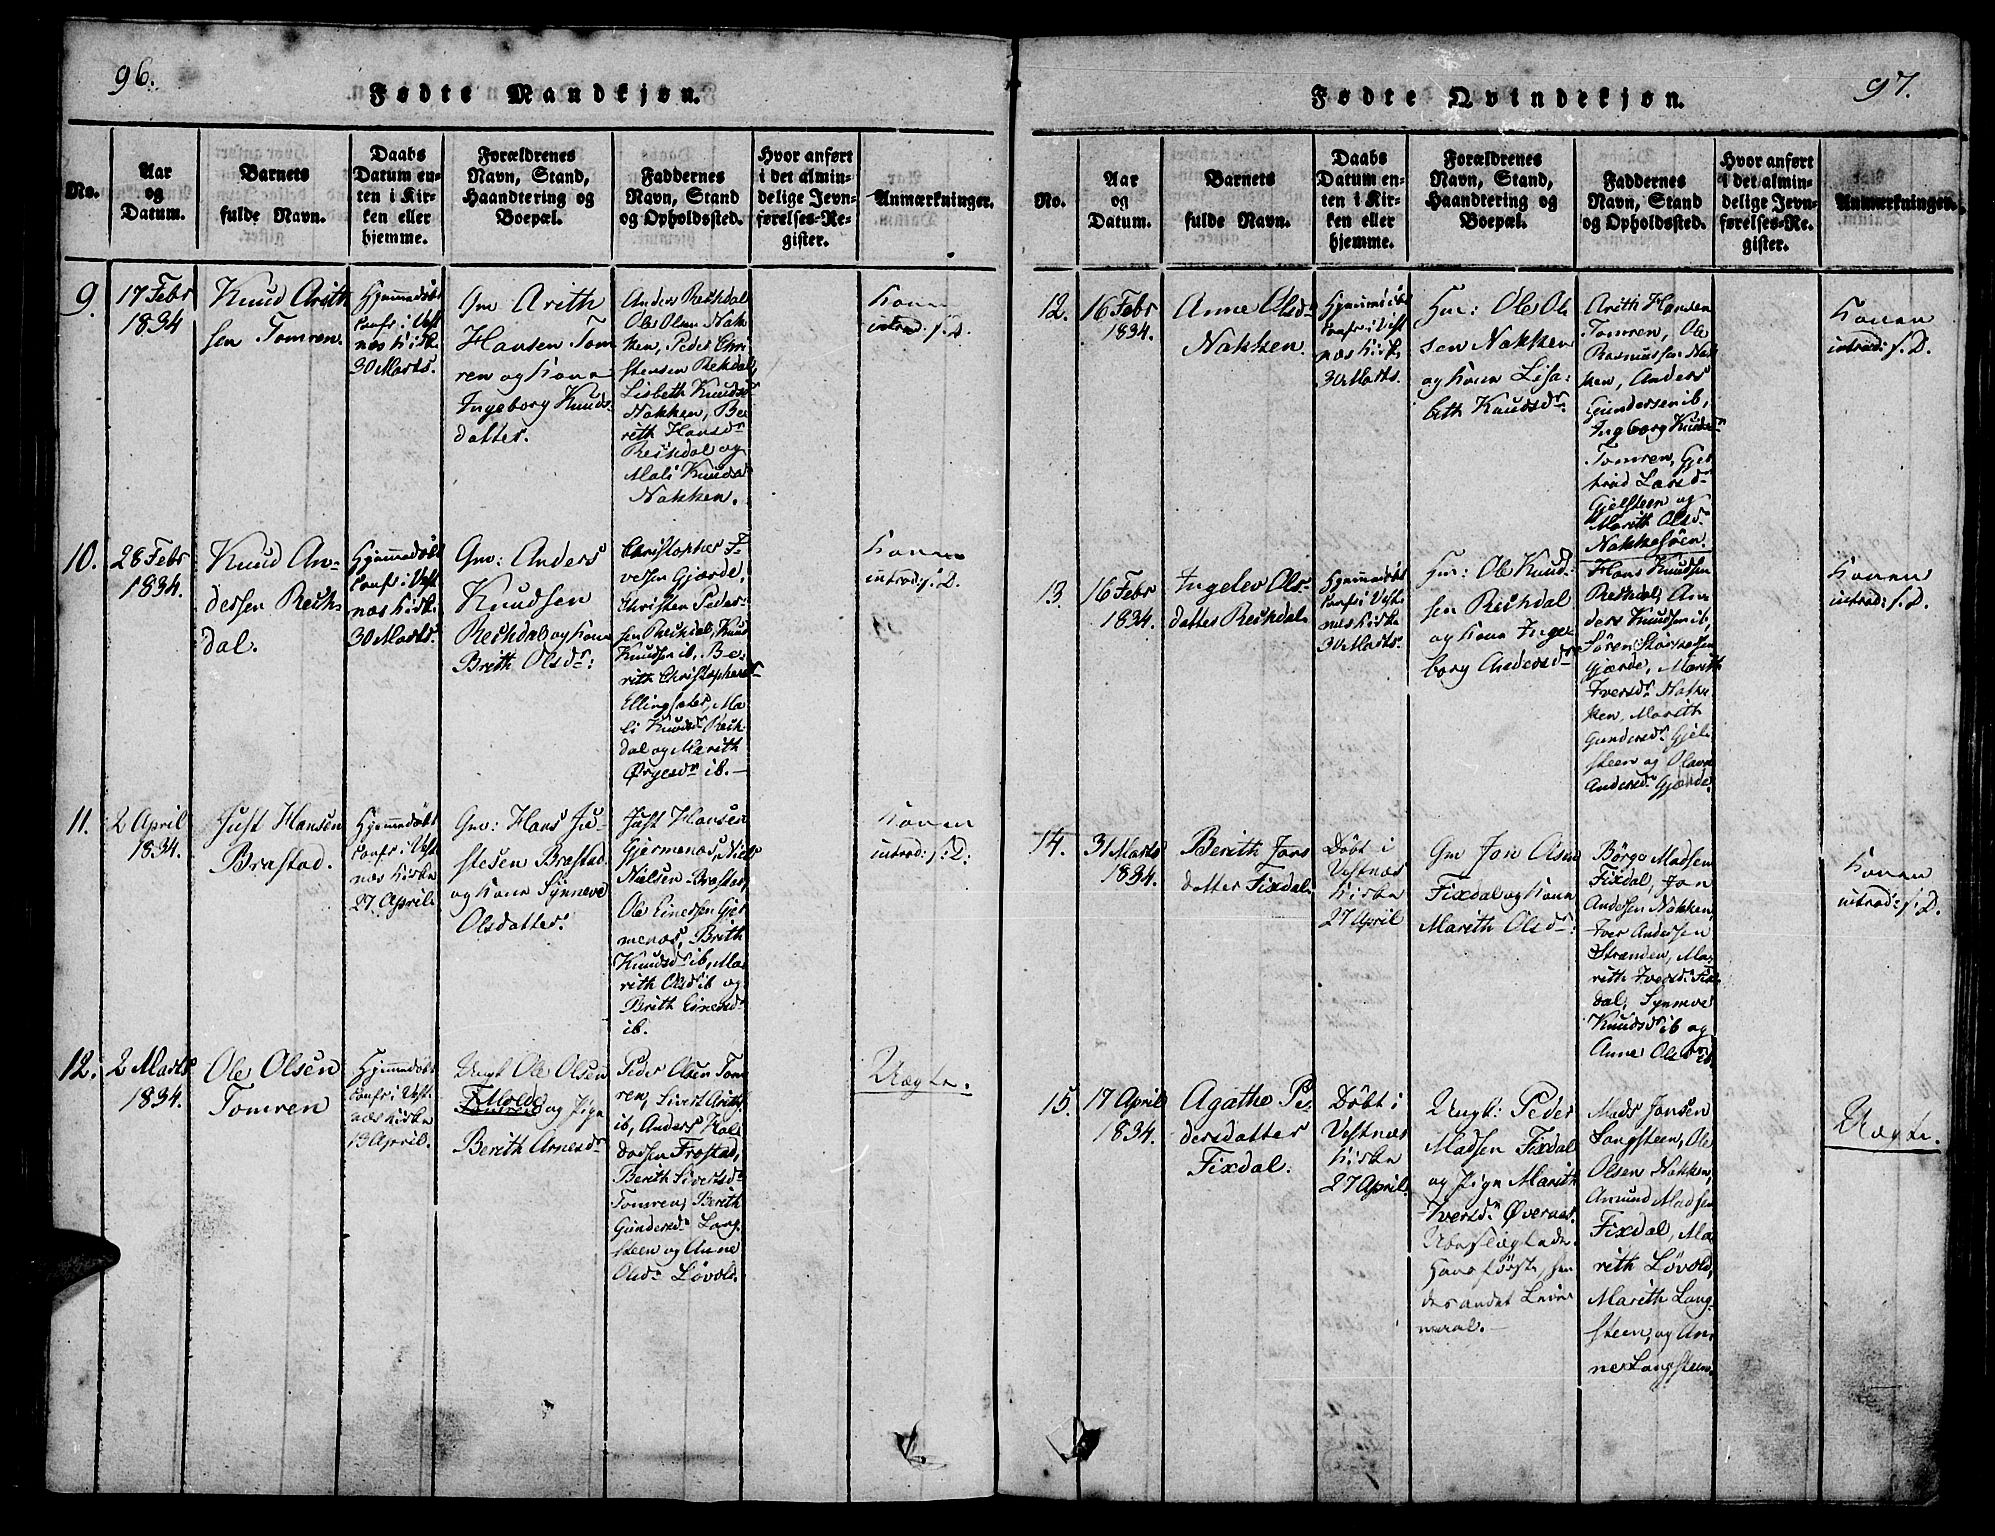 96.
Fødte Mandkjøn.
No.
Aar
og
Datum.
Barnets
fulde Navn.
Daabs
Datum en-
ten i Kir-
ken eller
hjemme.
Forældrenes
Navn, Stand,
Haandtering og
Boepæl.
Faddernes
Navn, Stand
og Opholdssted.
Hvor anført
i det almin-
delige Jevn-
førelses-Re-
gister.
Anmærkninger.
9.
17 Febr
1834
Knud Arith
sen Tomren.
Hjemmedøbt
Confr i Vest
næs Kirk.
30 Marts.
Gm Arith
Hansen Tom
ren og Kone
Ingeborg Knuds-
datter.
Anders Rechdal
Ole Olsen Nak
ken, Peder Chri
stensen Rechdal,
Lisbeth Knudsdr
Nakken, Be
rith Hansdr
Rechdal og
Mali Knudsdr
Nakken.
Konen
introd: s. D.
10.
28 Febr
1834.
Knud An-
dersen Rech-
dal.
Hjemmedøbt
Confr i Vest
næs Kirk.
30 Marts.
Gm: Anders
Knudsen
Rechdal og Kone
Brith Olsdr:
Christopher I-
versen Gjærde,
Christen Peder-
sen Rechdal, Knud
Knudsen ib, Be-
rith Christophersdr
Ellingsæter, Ma
li Knudsdr Rech-
dal og Marith
Ørgesdr ib.
Konen
introd: s. D.
11.
2 April
1834.
Just Hansen
Brastad.
Hjemmedøbt
Confr i Vest
næs Kirke
27 April.
Gm: Hans Ju-
stesen Brastad
og Kone Synneve
Olsdatter.
Just Hansen
Gjermenæs, Niels
Nielsen Brastad,
Ole Einersen Gjer
menæs, Brith
Knudsdr ib, Ma
rith Olsdr ib og
Brith Einersdr
ib.
Konen
introd: s. D:
12.
2 Marts
1834.
Ole Olsen
Tomren
Hjemmedøbt
Confr i Vest
næs Kirke
13 April.
Ungk Ole Olsen
Molde
Tomren og Pige
Berith Arnesdr
Peder Olsen Tom
ren, Sivert Arith.
ib, Anders Hal
dorsen Frostad,
Berith Sivertsdr
Tomren, Berith
Gundersdr Lang
steen og Anne
Olsdr Løvold.
Uægte.
97.
Fødte Qvindekjøn.
No.
Aar
og
Datum.
Barnets
fulde Navn.
Daabs
Datum en-
ten i Kir-
ken eller
hjemme.
Forældrenes
Navn, Stand,
Haandtering og
Boepæl.
Faddernes
Navn, Stand
og Opholdssted.
Hvor anført
i det almin-
delige Jevn-
førelses-Re-
gister.
Anmærkninger.
12.
16 Febr
1834.
Anne Olsdr
Nakken.
Hjemmedøbt
Confr i Vest
næs Kirk.
30 Marts.
Gm: Ole Ol
sen Nakken
og Kone Lisa-
beth Knudsdr.
Arith Hansen
Tomren, Ole
Rasmussen Nak
ken, Anders
Gundersen ib,
Ingeborg Knudsdr
Tomren, Gjer
trud Larsdr
Gjelsteen og
Marith Olsdr
Nakkesøen.
Konen
introd: s. D.
13.
16 Febr
1834.
Ingelev Ols-
datter Rechdal
Hjemmedøbt
Confr i Vest
næs Kirke
30 Marts.
Gm: Ole Knud-
sen Rechdal
og Kone Inge
borg Andersdr
Hans Knudsen
Rechdal, An
ders Knudsen ib,
Søren
Gjærde, Marith
Iversdr Nak
ken, Marith
Gundersdr Gjel-
steen og
Andersdr Gjærde.
Konen
introd: s. D.
14.
31 Marts
1834.
Berith Jons
datter Fixdal
Døbt i
Vestnæs
Kirke
27 April
Gm Jon Olsen
Fixdal og Kone
Marith Olsdr:
Børge Madsen
Fixdal, Jon
Andersen Nakken,
Iver Andersen
Stranden, Ma-
rith Iversdr Fix
dal, Synneve
Knudsdr ib og
Anne Olsdr ib.
Konen
introd: s. D.
15.
17 April
1834.
Agathe Pe
dersdatter
Fixdal.
Døbt i
Vestnæs
Kirke
27 April.
Ungk: Peder
Madsen Fixdal
og Pige Marith
Iversdr Øvernæs.
Ubeslægtede.
Hans første, hen
des andet Leier
maal.
Mads Jonsen
Langsteen, Ole
Olsen Nakken,
Amund Madsen
Fixdal, Ma
rith Løvold,
Marith Lang-
steen, og An-
ne Langsteen.
Uægte.